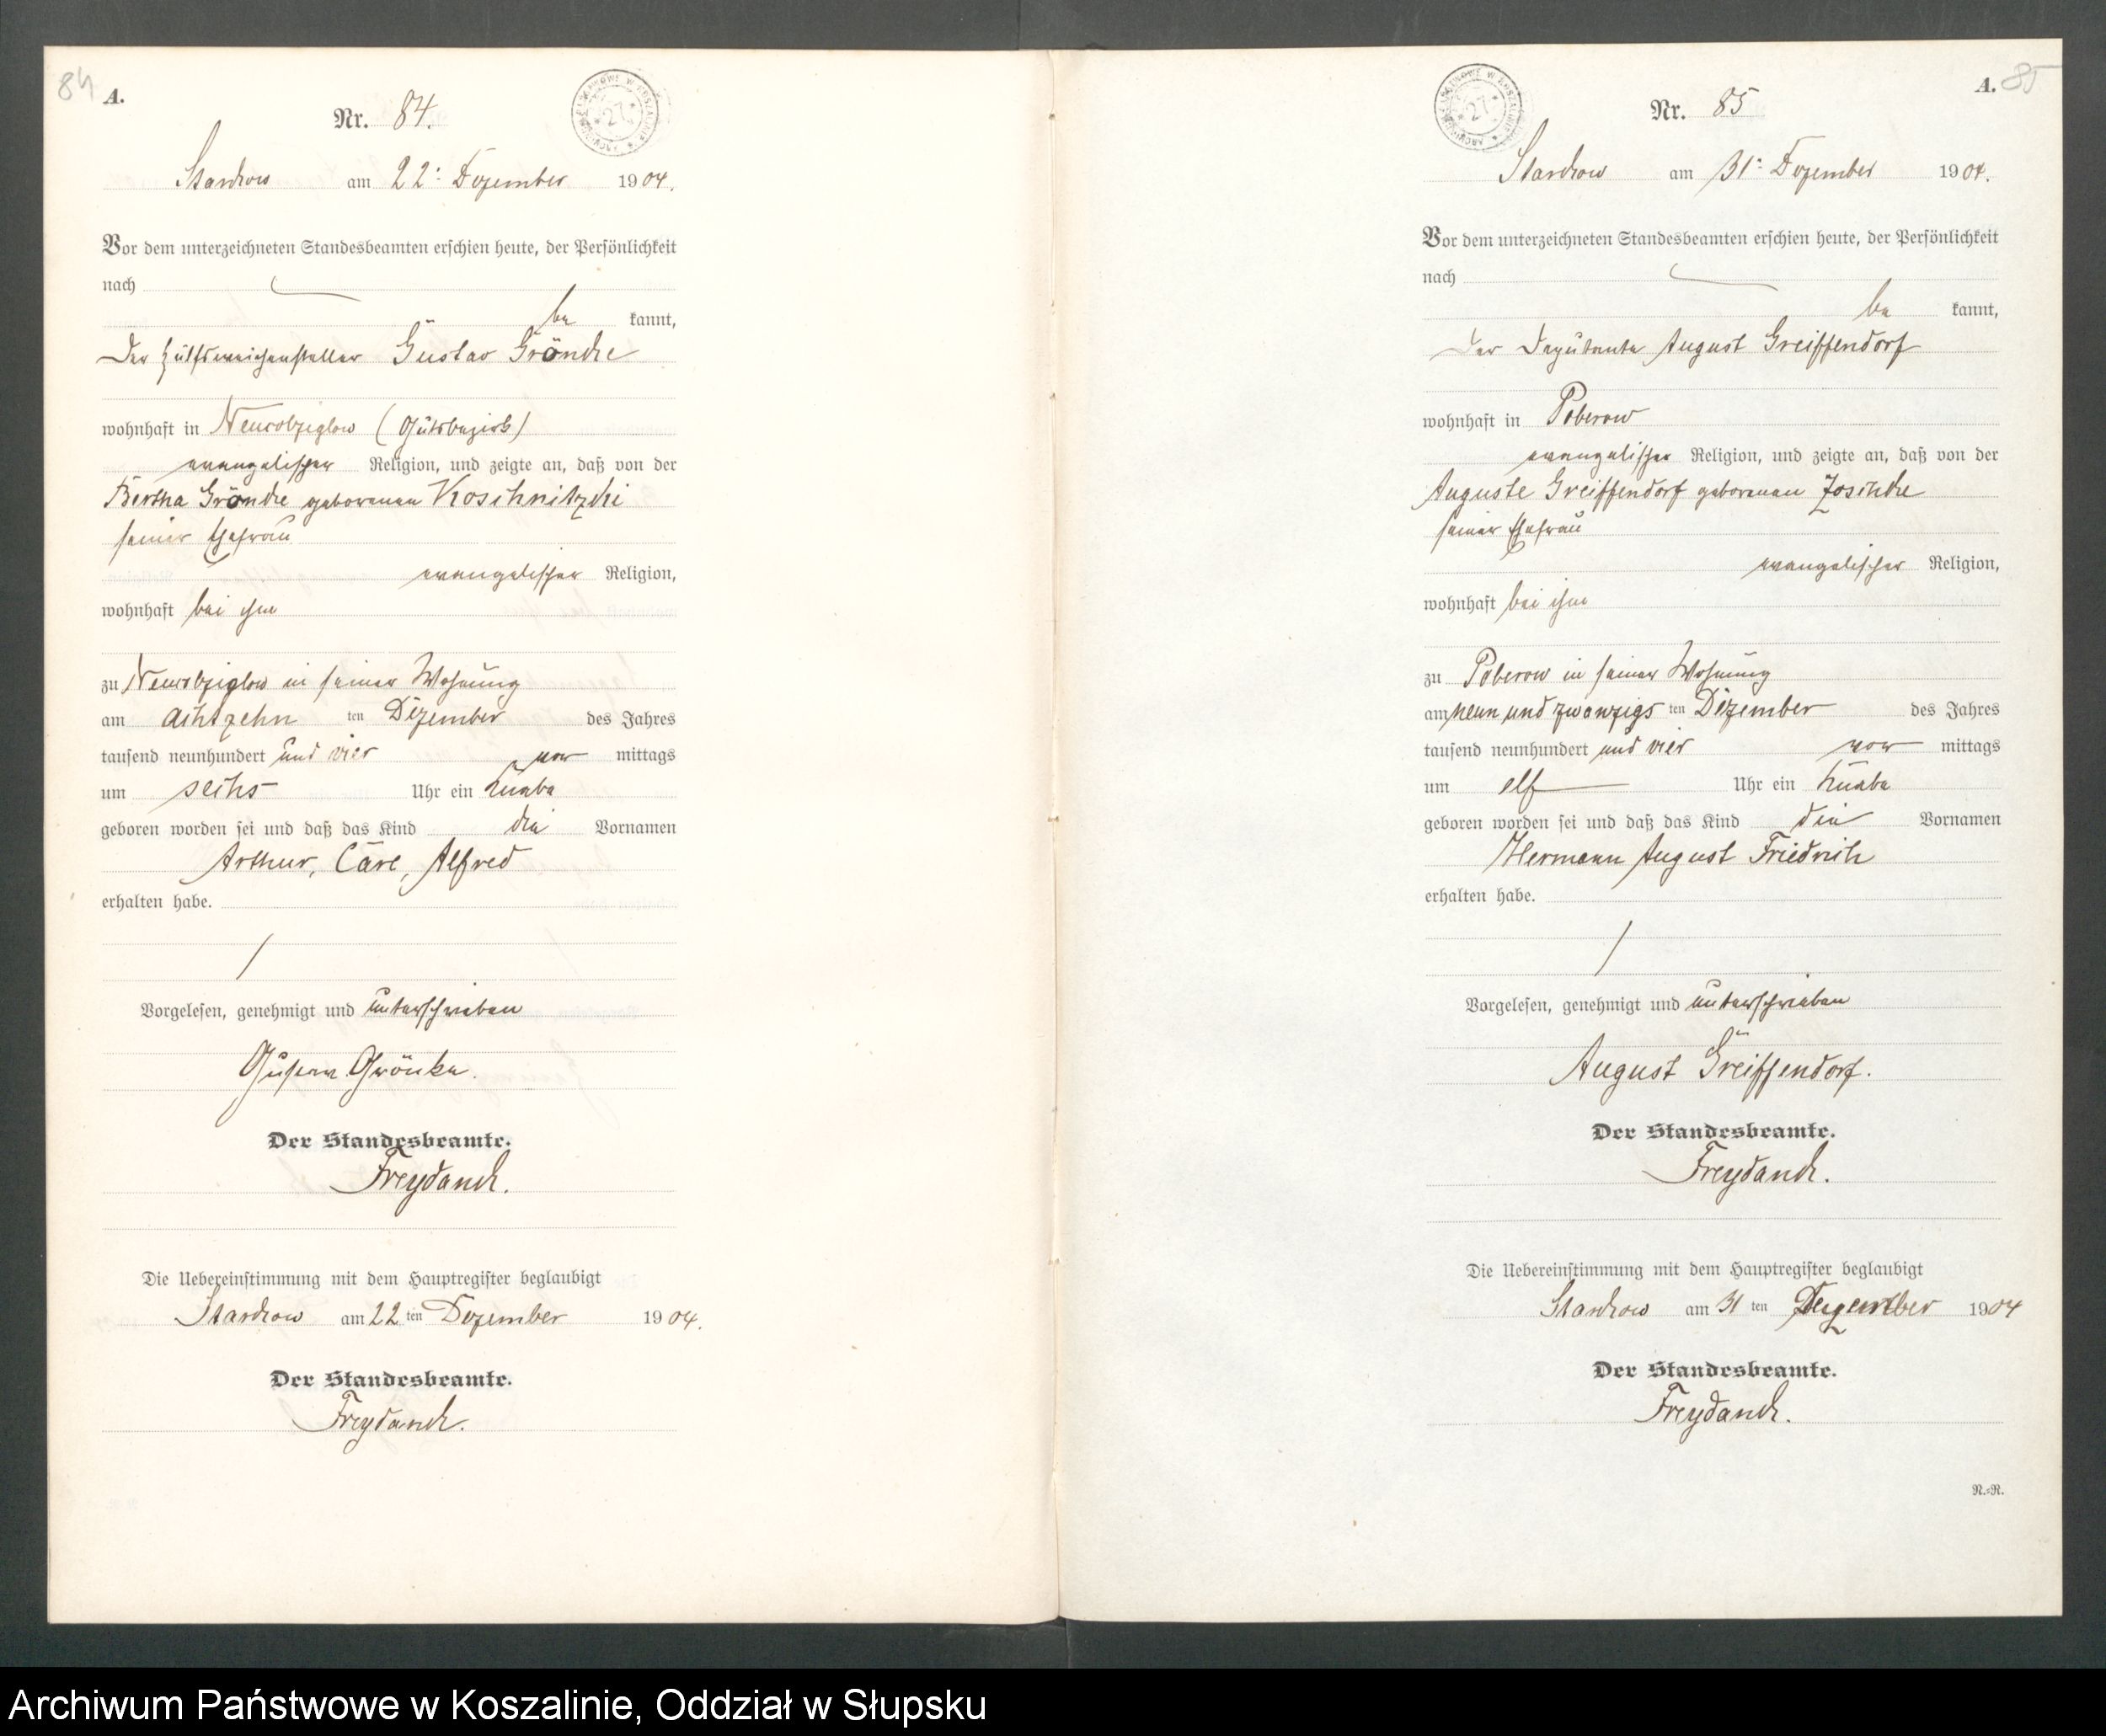 84
A.
Nr. 84.
ARCHIWUM PAŃSTWOWE W KOSZALINIE
27
Starkow am 22: Dezember 1904.
Vor dem unterzeichneten Standesbeamten erschien heute, der Persönlichkeit
nach
be kannt,
Der Hülfsweichensteller Gustav Grönke
wohnhaft in Neurolziglow (Gutsbezirk)
evangelischer Religion, und zeigte an, daß von der
Bertha Grönke geborenen Koschnitzki
seiner Ehefrau
evangelischer Religion,
wohnhaft bei ihm
zu Neurolziglow in seiner Wohnung
am achtzehn ten Dezember des Jahres
tausend neunhundert und vier vor mittags
um sechs Uhr ein Knabe
geboren worden sei und daß das Kind die Vornamen
Arthur, Carl, Alfred
erhalten habe.
Vorgelesen, genehmigt und unterschrieben
Gustav Grönke.
Der Standesbeamte.
Freydank.
Die Uebereinstimmung mit dem Hauptregister beglaubigt
Starkow am 22 ten Dezember 1904.
Der Standesbeamte.
Freydank.
A. 85
Nr. 85
ARCHIWUM PAŃSTWOWE W KOSZALINIE
27
Starkow am 31: Dezember 1904.
Vor dem unterzeichneten Standesbeamten erschien heute, der Persönlichkeit
nach
be kannt,
Der Deputant August Greiffendorf
wohnhaft in Poberow
evangelischer Religion, und zeigte an, daß von der
Auguste Greiffendorf geborenen Joschke
seiner Ehefrau
evangelischer Religion,
wohnhaft bei ihm
zu Poberow in seiner Wohnung
am neun und zwanzigs ten Dezember des Jahres
tausend neunhundert und vier vor mittags
um elf Uhr ein Knabe
geboren worden sei und daß das Kind die Vornamen
Hermann August Friedrich
erhalten habe.
Vorgelesen, genehmigt und unterschrieben
August Greiffendorf.
Der Standesbeamte.
Freydank.
Die Uebereinstimmung mit dem Hauptregister beglaubigt
Starkow am 31 ten Dezember 1904
Der Standesbeamte.
Freydank.
N.=R.
Archiwum Państwowe w Koszalinie, Oddział w Słupsku